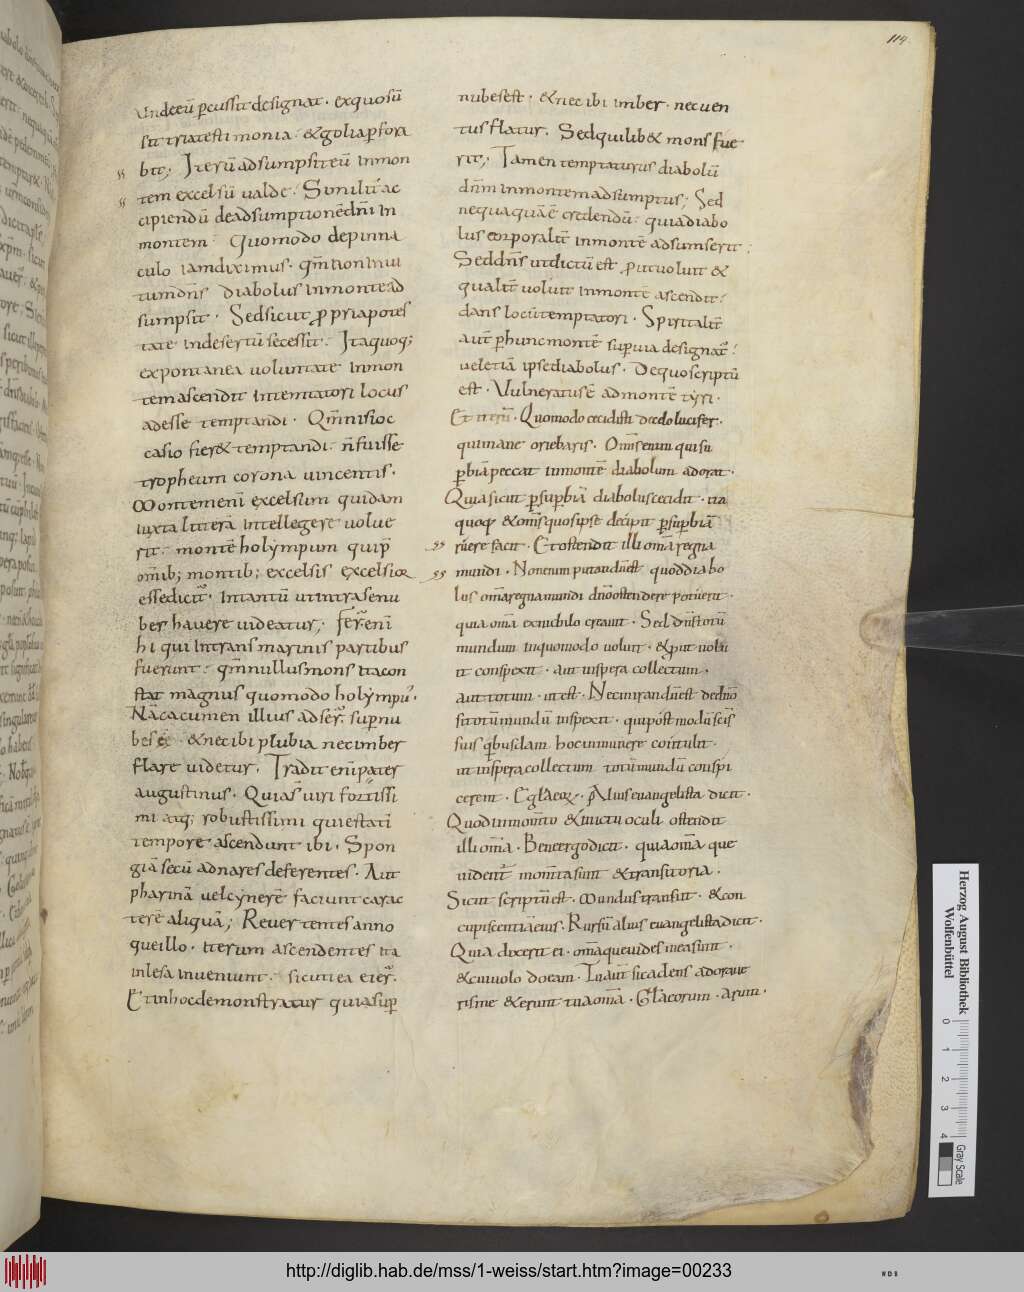 114
undeeū ꝑcussit designat · exquosū
sit tria testimonia · & golia ꝑfora
bit; Iterū adsumpsit eū inmon
tem excelsū ualde · Similit ac
cipiendū de adsumptionē dn̄i in
montem · Quomodo de pinna
culo iam diximus · qm̄ non inui
tum dn̄s diabolus in monte ad
sumpsit · Sed sicut ꝓpria potes
tate in desertū secessit · Itaquoq;
expontanea uoluntate inmon
tem ascendit in temtatori locus
adesse temptandi · Qm̄ nisi oc
casio fier& temptandi · n̄ fuisse
tropheum corona uincentis ·
Montem enī excelsum quidam
iuxta litterā intellegere uolue
rit · montē holympum qui ꝑ
om̄ib; montib; excelsis excelsior
esse dicit · Intantū ut intra se nu
bes hauere uideatur;
hi qui intransmarinis partibus
fuerunt · qm̄ nullus mons ita con
stat magnus quomodo holympū ·
Nā cacumen illius
bes · & nec ibi plubia nec imber
flare uidetur · Tradit enī pater
augustinus · Quia uiri fortissi
mi atq; robustissimi qui estati
tempore ascendunt ibi · Spon
giā secū ad nares deferentes · Aut
pharinā uel cynerē faciunt carac
terē aliquā; Reuertentes anno
que illo · iterum ascendentes ita
inlesa inueniunt · sicuti ea
Et in hoc demonstratur quia suꝑ
nubes est · & nec ibi imber · nec uen
tus flatur · Sed quilib& mons fue
rit; Tamen temptaturus diabolū
dn̄m in montem adsumptus; Sed
nequaquā ē credendū · quia diabo
lus corporalit in montē adsumserit;
Sed dn̄s ut dictū est prout uoluit &
qualit uoluit in montē ascendit ·
dans locū temptatori · Spiritalit
aut ꝑ hunc montē suꝑuia designat ·
uel etiā ipse diabolus · De quo scriptū
est · Vulneratus ē ad montē tyri ·
Et iterū · Quomodo cecidisti de celo lucifer ·
qui mane oriebaris · Om̄s enim qui su
ꝑbiā peccat in montē diabolum adorat ·
Quia sicut ꝑ suꝑbiā diabolus cecidit · ita
quoq; & om̄s quos ipse decipit ꝑ suꝑbiā
ruere facit · Et ostendit illi om̄a regna
mundi · Non enim putandū est quod diabo
lus om̄a regna mundi dn̄o ostendere potuerit ·
quia om̄a ex nichilo creauit · Sed dn̄s totū
mundum in quomodo uoluit · & prout uolu
it conspexit · aut in spera collectum ·
aut totum · ut est · Nec mirandū est de dn̄o
si totū mundū inspexit · qui post modū sc̄is
suis quibusdam hoc in munere contulit ·
ut in spera collectum totū mundū conspi
cerent · Alius euangelista dicit ·
Quod in momto & in ictu oculi ostendit
illi om̄a · Bene ergo dicit · quia om̄a que
uident mom̄ta sunt & transitoria ·
Sicut scriptū est · Mundus transit · & con
cupiscentia eius · Rursū alius euangelista dicit ·
Quia dixerit ei · om̄a que uides mea sunt ·
& cui uolo do eam · Tu aut si cadens adoraue
ris me & erunt tua om̄a ·
Herzog August Bibliothek
Wolfenbüttel
0 1 2 3 4
Gray Scale
http://diglib.hab.de/mss/1-weiss/start.htm?image=00233